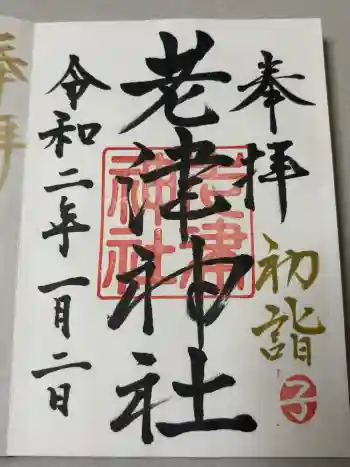 奉拝
初詣
子
老津神社
老津神社
令和二年一月二日
奉拝